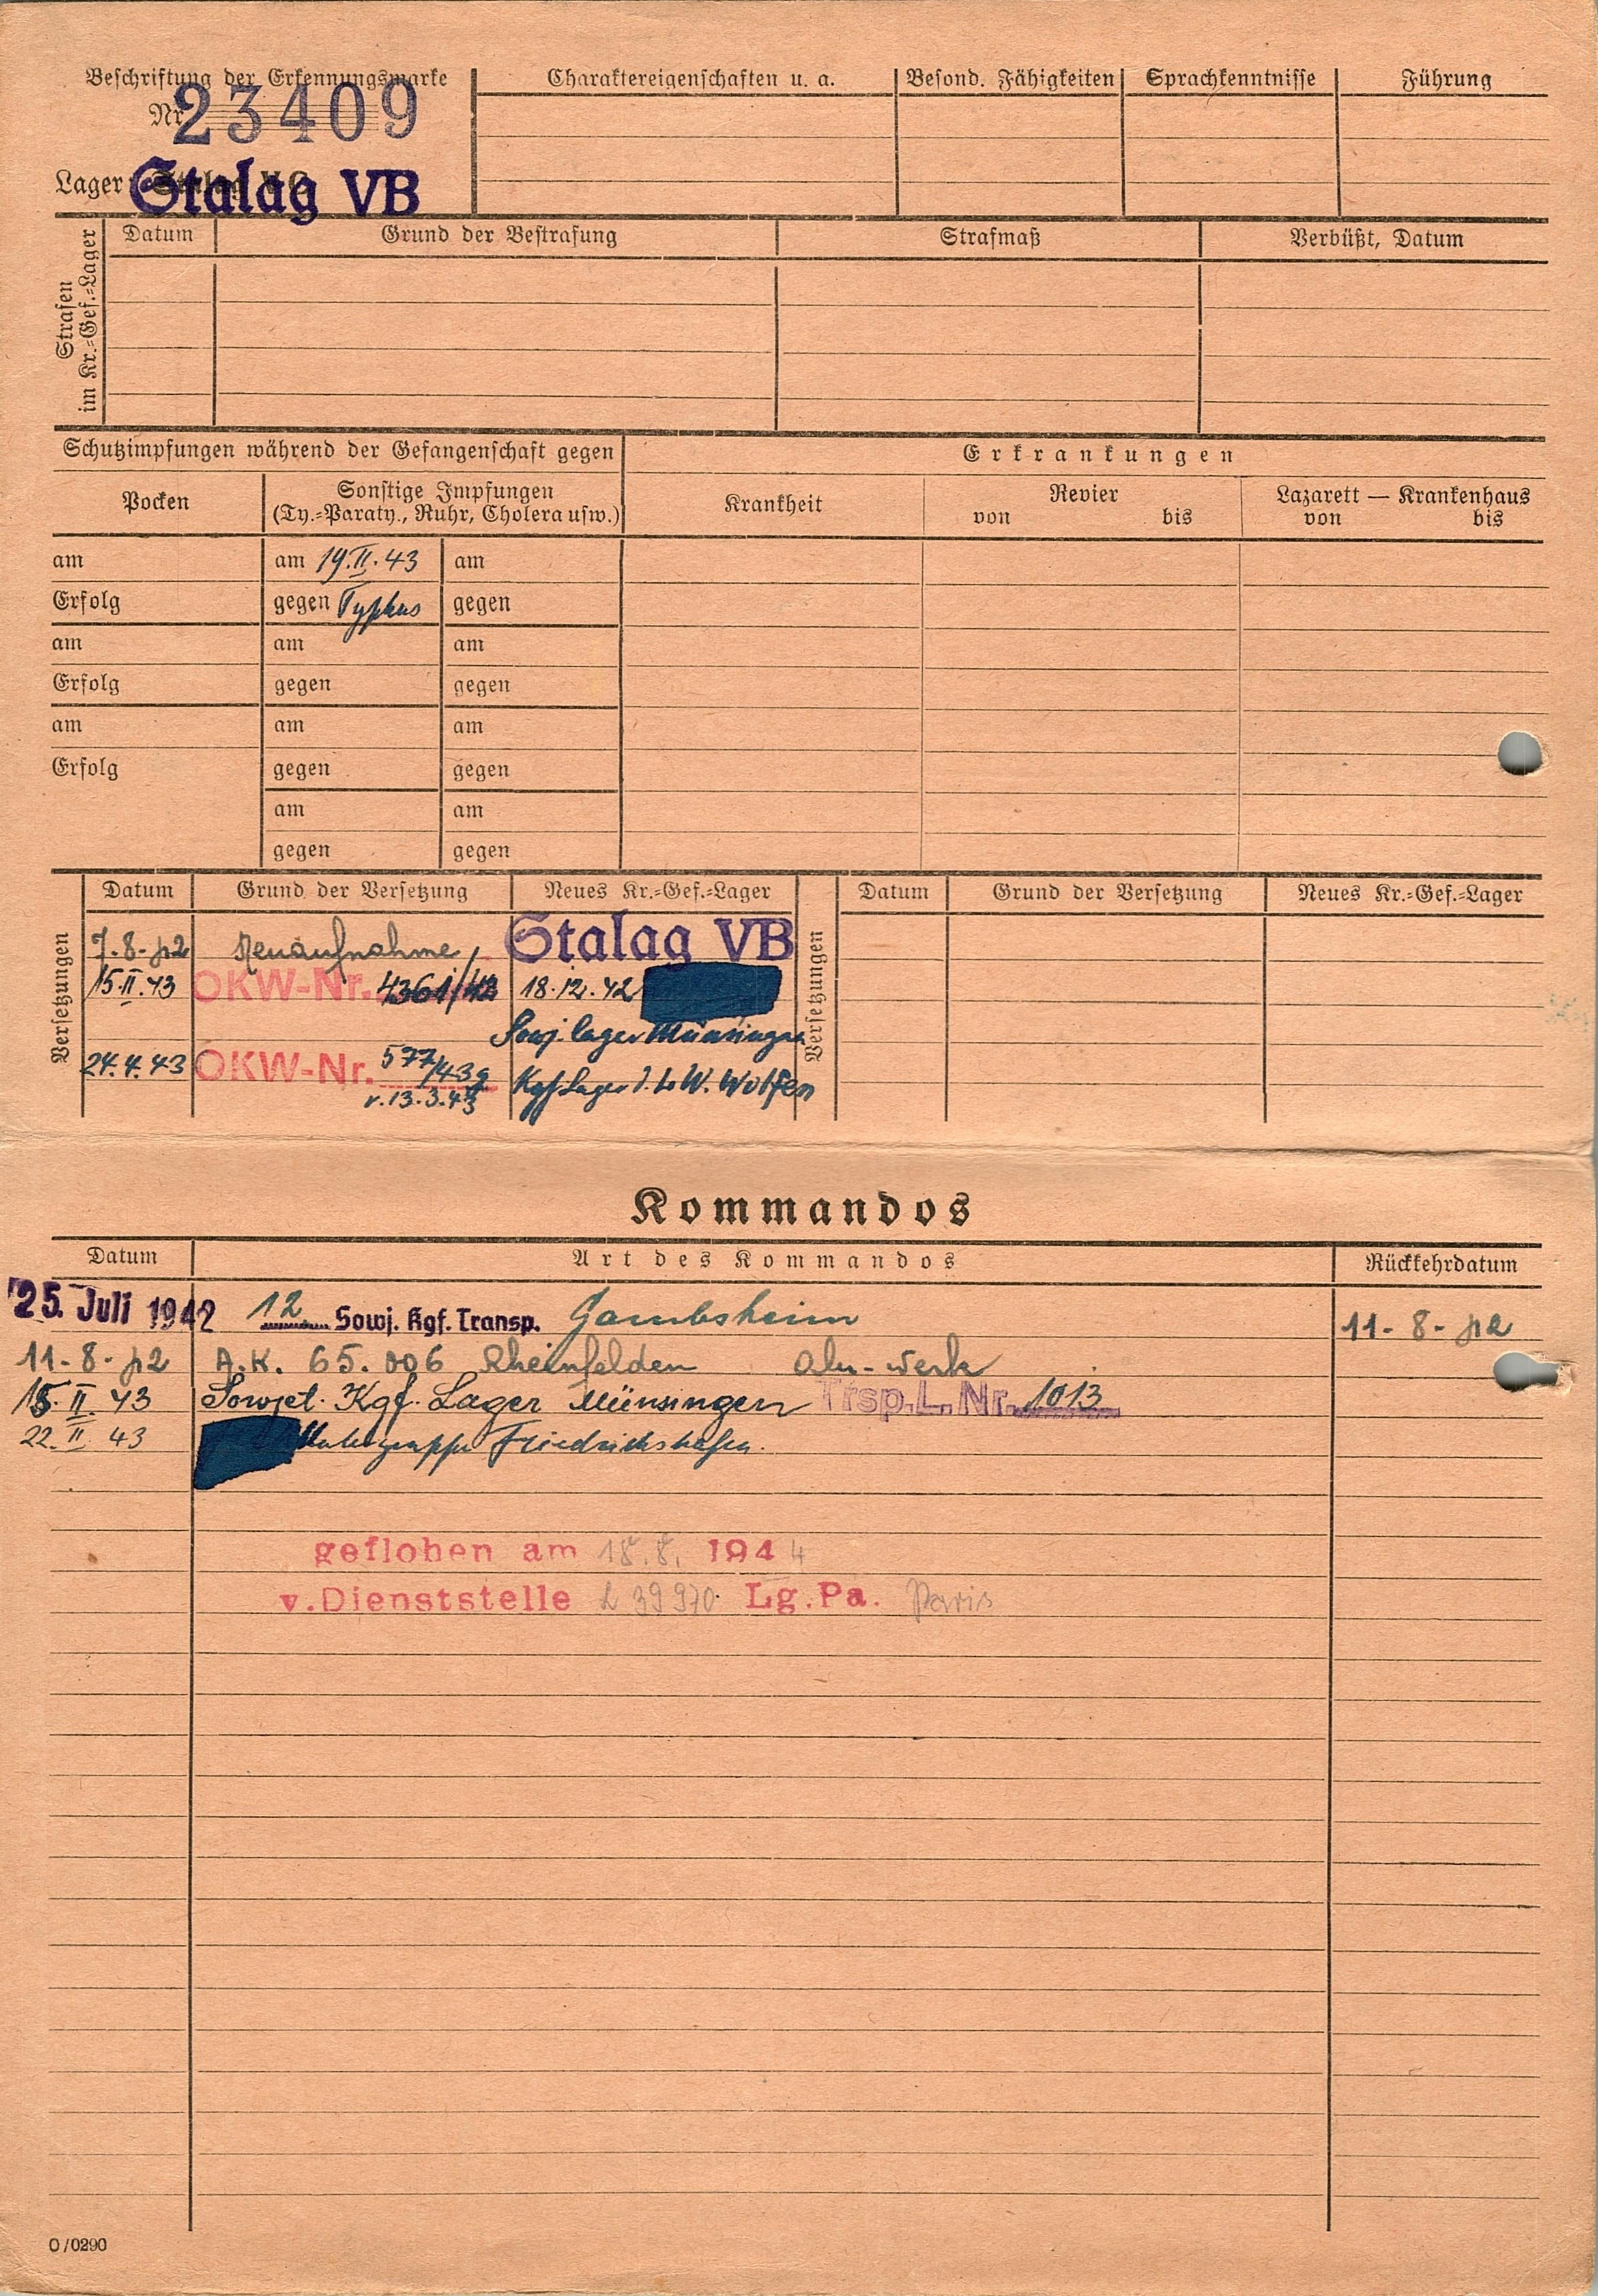 Beschriftung der Erkennungsmarke
Nr. 23409
Lager: Stalag VB
Charaktereigenschaften u. a. Besond. Fähigkeiten Sprachkenntnisse Führung
Strafen im Kr.=Gef.=Lager
Datum Grund der Bestrafung Strafmaß Verbüßt, Datum
Schutzimpfungen während der Gefangenschaft gegen
Erkrankungen
Pocken
Sonstige Impfungen
(Ty.=Paraty., Ruhr, Cholera usw.)
Krankheit
Revier
von bis
Lazarett — Krankenhaus
von bis
am am 19.II.43 am
Erfolg gegen Typhus gegen
am am am
Erfolg gegen gegen
am am am
Erfolg gegen gegen
am am
gegen gegen
Versetzungen
Datum Grund der Versetzung Neues Kr.=Gef.=Lager
7.8-42 Neuaufnahme Stalag VB
15.II.43 OKW-Nr. 4361/42 18.12.42
Sowj. lager Münsingen
24.4.43 OKW-Nr. 577/43g
v. 13.3.43
Kgf Lager d. Lw. Wolfen
Versetzungen
Datum Grund der Versetzung Neues Kr.=Gef.=Lager
Kommandos
Datum Art des Kommandos Rückkehrdatum
25. Juli 1942 12 Sowj. Kgf. Transp. Gambsheim 11-8-42
11-8-42 A.K. 65.006 Rheinfelden Alu-Werk
15.II.43 Sowjet. Kgf. Lager Münsingen Trsp.L.Nr. 1013
22.II.43 Untergruppe Friedrichshafen.
geflohen am 18.8. 1944
v.Dienststelle L 39970 Lg.Pa. Paris
O/0290